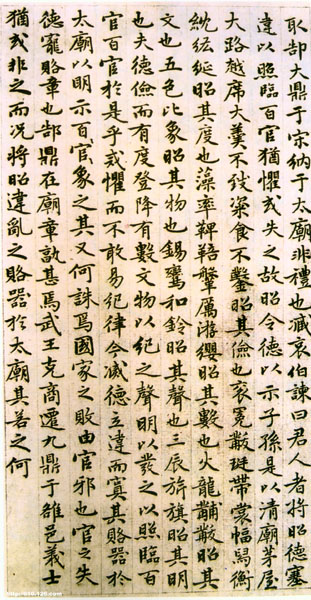 取郜大鼎于宋納于太廟非禮也臧哀伯諫曰君人者將昭德塞
違以照臨百官猶懼或失之故昭令德以示子孫是以清廟茅屋
大路越席大羹不致粢食不鑿昭其儉也袞冕黻珽帶裳幅舄衡
紞紘綖昭其度也藻率鞞鞛鞶厲游纓昭其數也火龍黼黻昭其
文也五色比象昭其物也錫鸞和鈴昭其聲也三辰旂旗昭其明
也夫德儉而有度登降有數文物以紀之聲明以發之以照臨百
官百官於是乎戒懼而不敢易紀律今滅德立違而寘其賂器於
太廟以明示百官象之其又何誅焉國家之敗由官邪也官之失
德寵賂章也郜鼎在廟章孰甚焉武王克商遷九鼎于雒邑義士
猶或非之而况將昭違亂之賂器於太廟其若之何